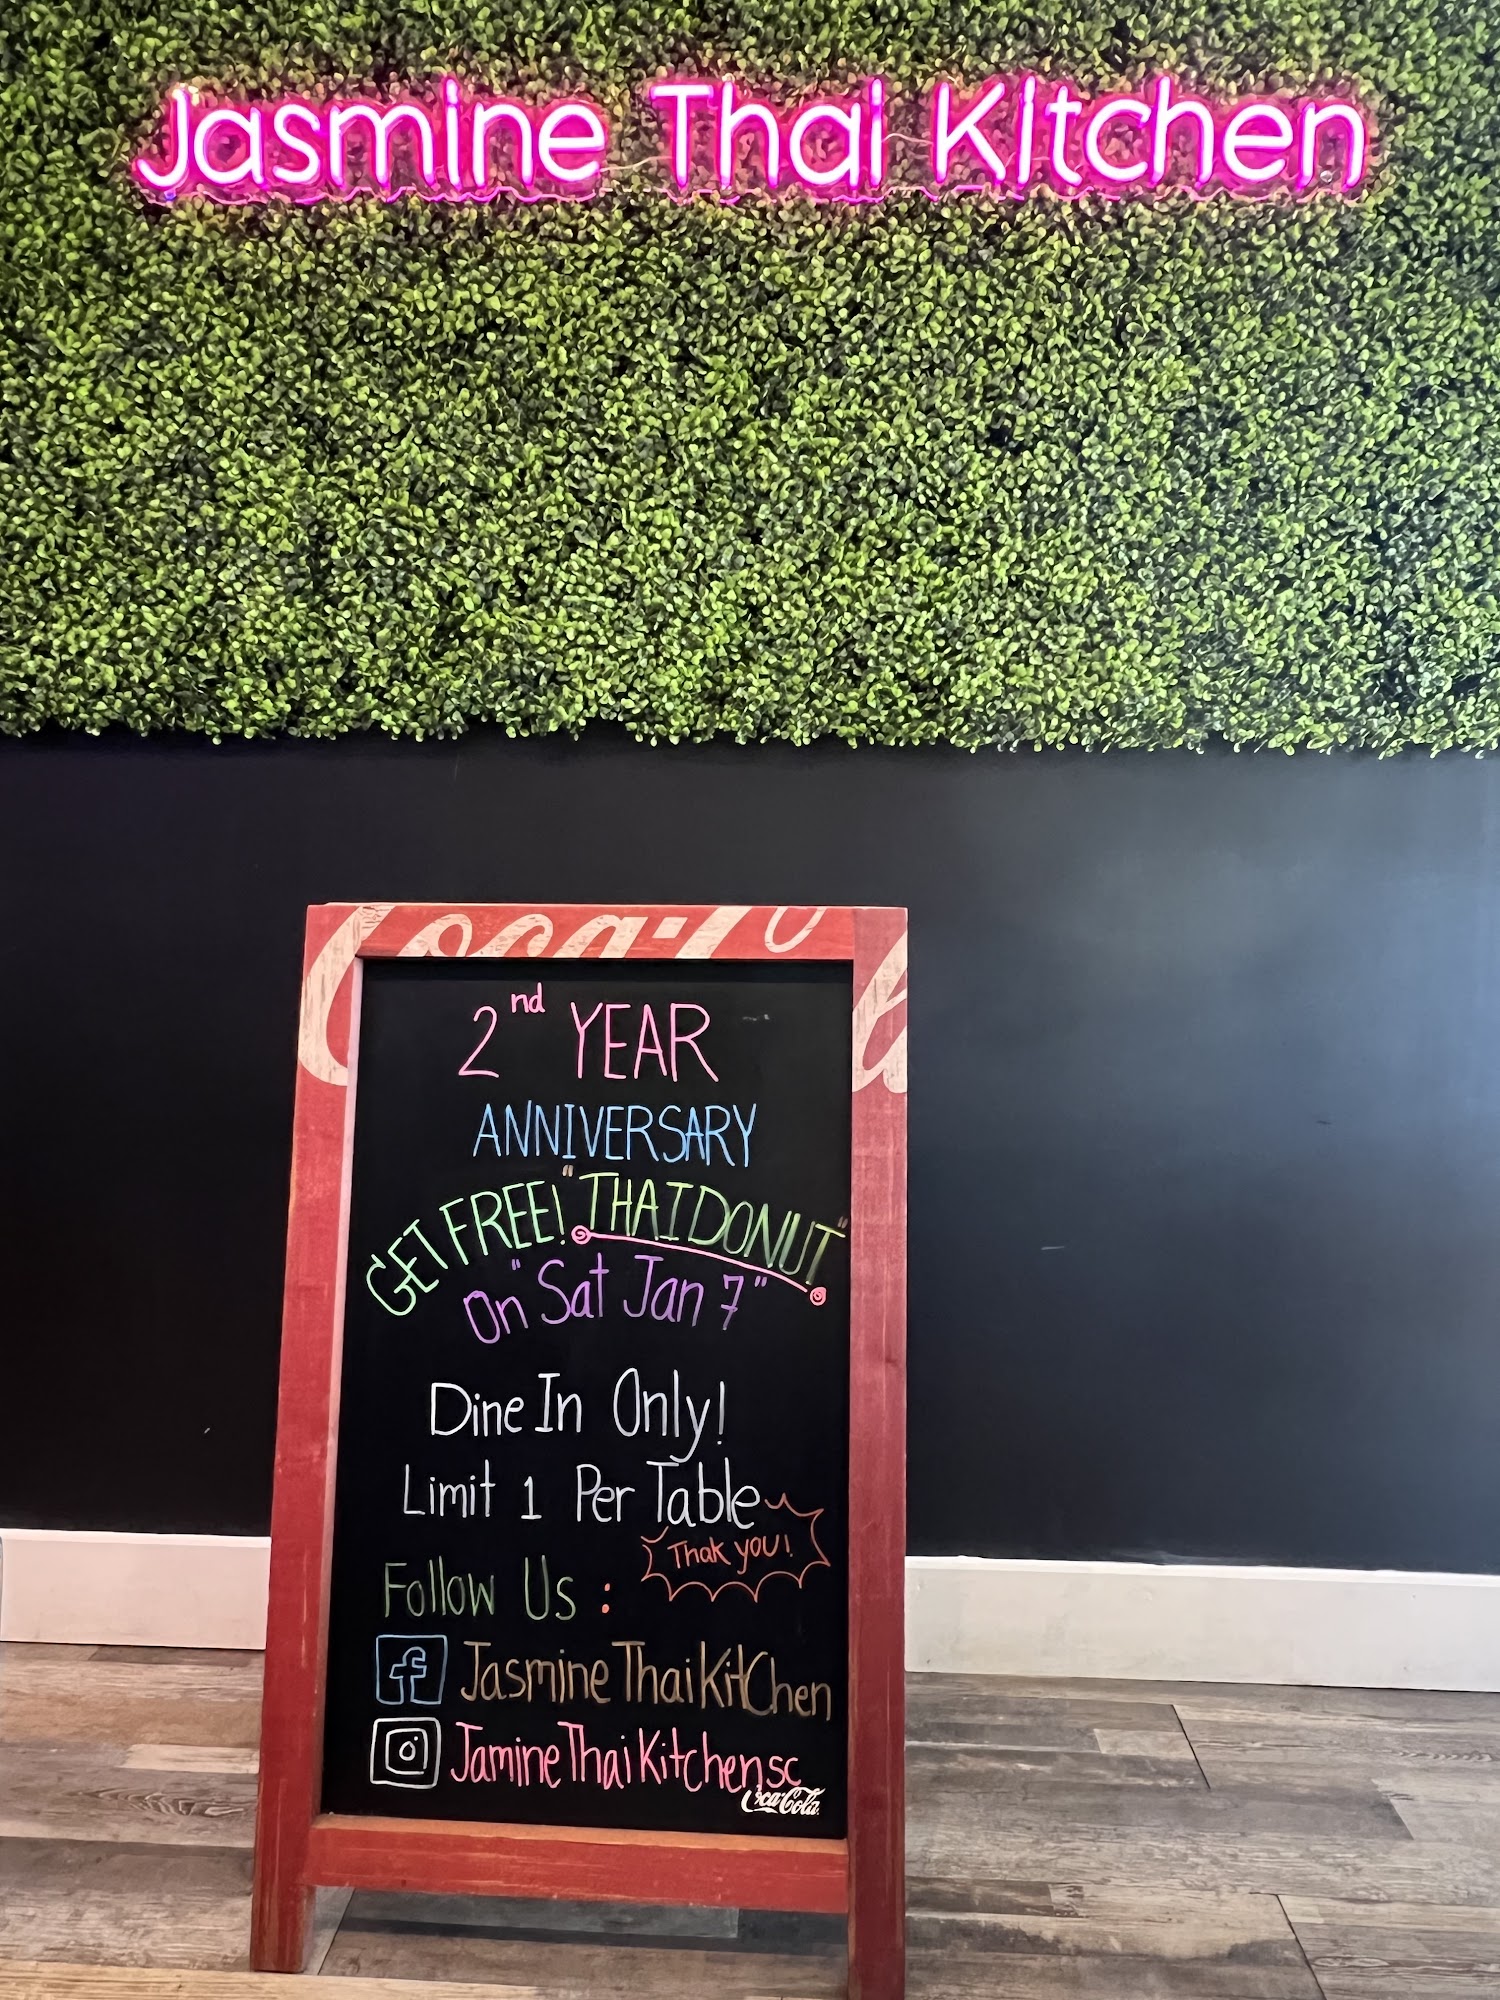 Jasmine Thai Kitchen
Coca-Cola
2nd YEAR
ANNIVERSARY
GET FREE! "THAI DONUT"
On "Sat Jan 7"
Dine In Only!
Limit 1 Per Table
Thak you!
Follow Us :
f Jasmine Thai KitChen
Jamine Thai Kitchensc
Coca-Cola